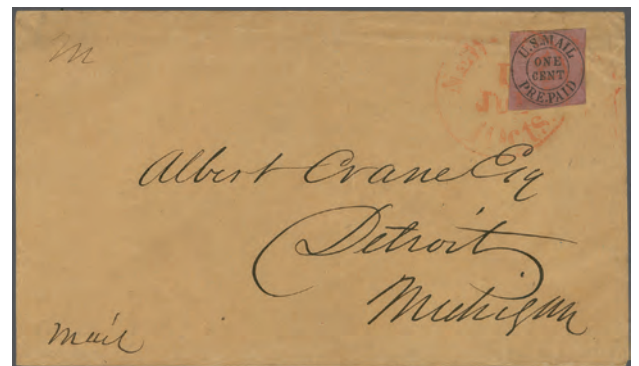 m
U.S.MAIL
ONE
CENT
PRE-PAID
Albert Crane Esq
Detroit
Michigan
Mail